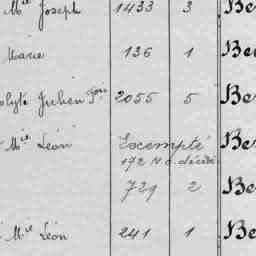 Mie Joseph 1433 3 Be
Marie 136 1 Be
olyte Julien Fois 2055 5 Be
Mie Léon Exempté Be
172 N.O. décédé
729 2 Be
Mie Léon 241 1 Be